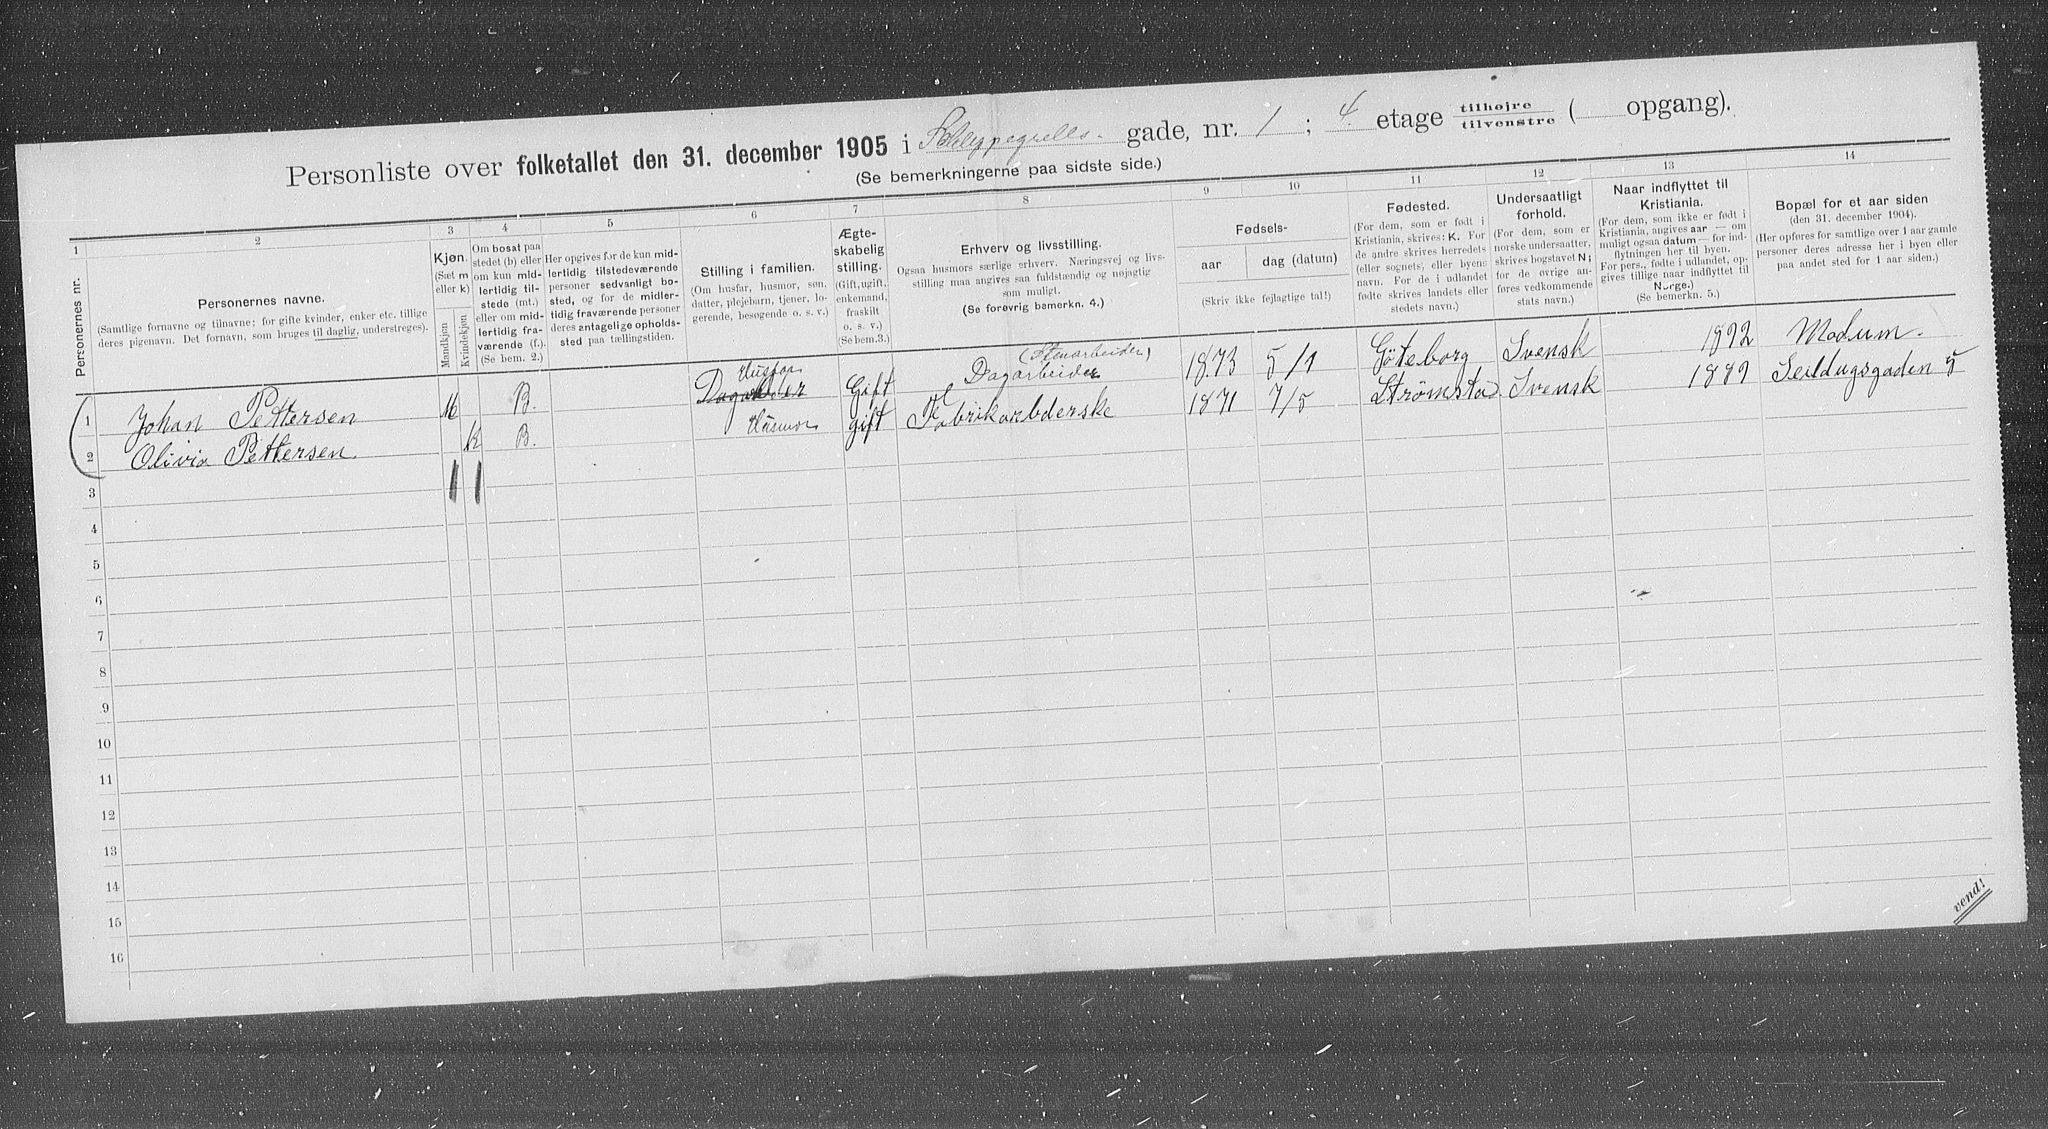 Personliste over folketallet den 31. december 1905 i Schleppegrells- gade, nr. 1 ; 4. etage tilhøjre / tilvenstre ( opgang).
(Se bemerkningerne paa sidste side.)
1 2 3 4 5 6 7 8 9 10 11 12 13 14
Personernes nr.
Personernes navne.
(Samtlige fornavne og tilnavne; for gifte kvinder, enker etc. tillige
deres pigenavn. Det fornavn, som bruges til daglig, understreges).
Kjøn.
(Sæt m
eller k)
Mandkjøn
Kvindekjøn
Om bosat paa
stedet (b) eller
om kun mid-
lertidig til-
stede (mt.)
eller om mid-
lertidig fra-
værende (f.).
(Se bem. 2.)
Her opgives for de kun mid-
lertidig tilstedeværende
personer sedvanligt bo-
sted, og for de midler-
tidig fraværende personer
deres antagelige opholds-
sted paa tællingstiden.
Stilling i familien.
(Om husfar, husmor, søn,
datter, plejebarn, tjener, lo-
gerende, besøgende o. s. v.)
Ægte-
skabelig
stilling.
(Gift, ugift,
enkemand,
fraskilt
o. s. v.)
(Se bem.3.)
Erhverv og livsstilling.
Ogsaa husmors særlige erhverv. Næringsvej og livs-
stilling maa angives saa fuldstændig og nøjagtig
som muligt.
(Se forøvrig bemerkn. 4.)
Fødsels-
aar
dag (datum)
(Skriv ikke fejlagtige tal!)
Fødested.
(For dem, som er født i
Kristiania, skrives: K. For
de andre skrives herredets
(eller sognets) eller byens
navn. For de i udlandet
fødte skrives landets eller
stedets navn.)
Undersaatligt
forhold.
(For dem, som er
norske undersaatter,
skrives bogstavet N;
for de øvrige an-
føres vedkommende
stats navn.)
Naar indflyttet til
Kristiania.
(For dem, som ikke er født i
Kristiania, angives aar — om
muligt ogsaa datum — for ind-
flytningen her til byen.
For pers., fødte i udlandet, op-
gives tillige naar indflyttet til
Norge.)
(Se bemerkn. 5.)
Bopæl for et aar siden
(den 31. december 1904).
(Her opføres for samtlige over 1 aar gamle
personer deres adresse her i byen eller
paa andet sted for 1 aar siden.)
1 Johan Pettersen M B. Husfar Gift (Stenarbeider) Dagarbeider 1873 5/1 Göteborg Svensk 1892 Modum.
2 Olivia Pettersen k B. Husmor gift Fabrikarbderske 1871 7/5 Strømstad Svensk 1889 Seildugsgaden 5
3
4
5
6
7
8
9
10
11
12
13
14
15
16
vend!